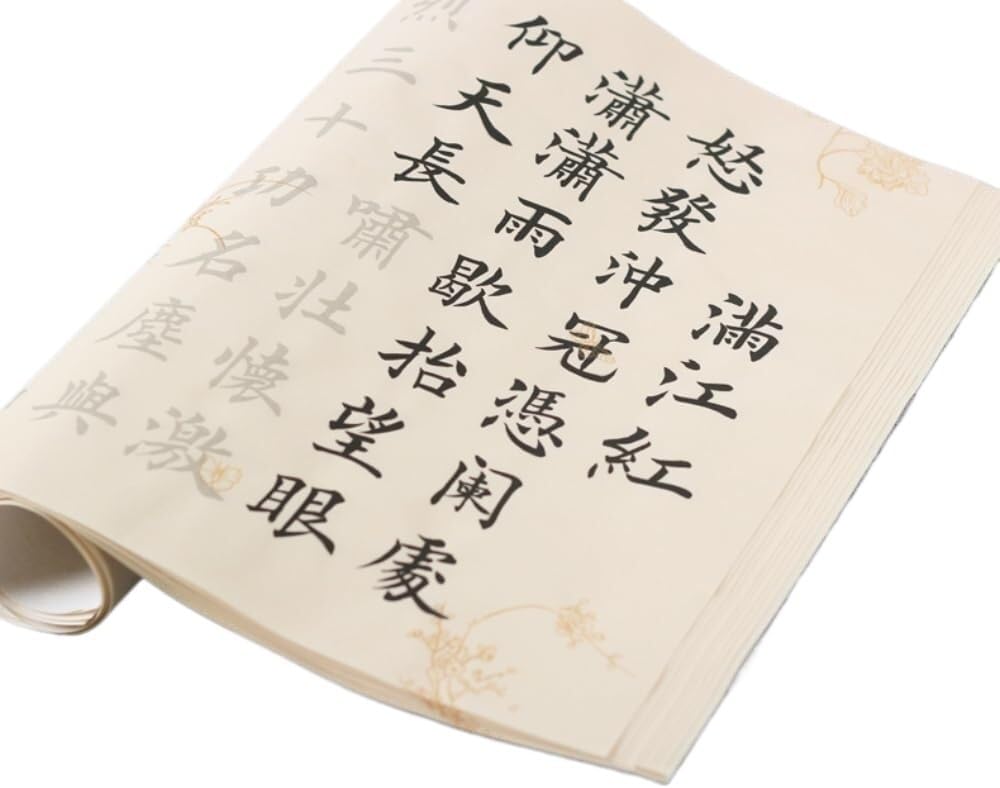 滿江紅
怒發沖冠憑闌處
瀟瀟雨歇抬望眼
仰天長嘯壯懷激
烈三十功名塵與